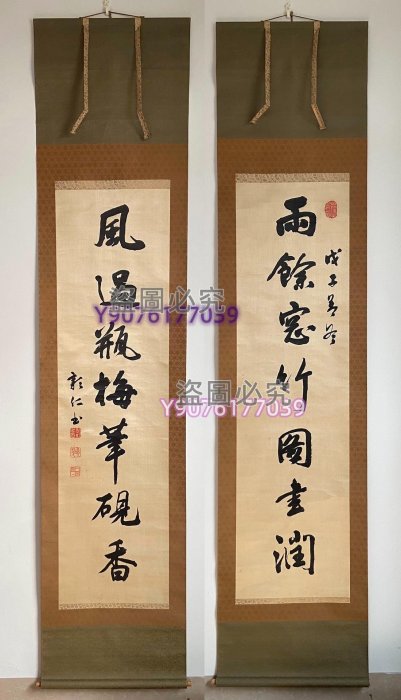 雨餘窓竹圖書潤
戊子善冬
風過瓶梅華硯香
彰仁書
盜圖必究
Y9076177059
盜圖必究
Y9076177059